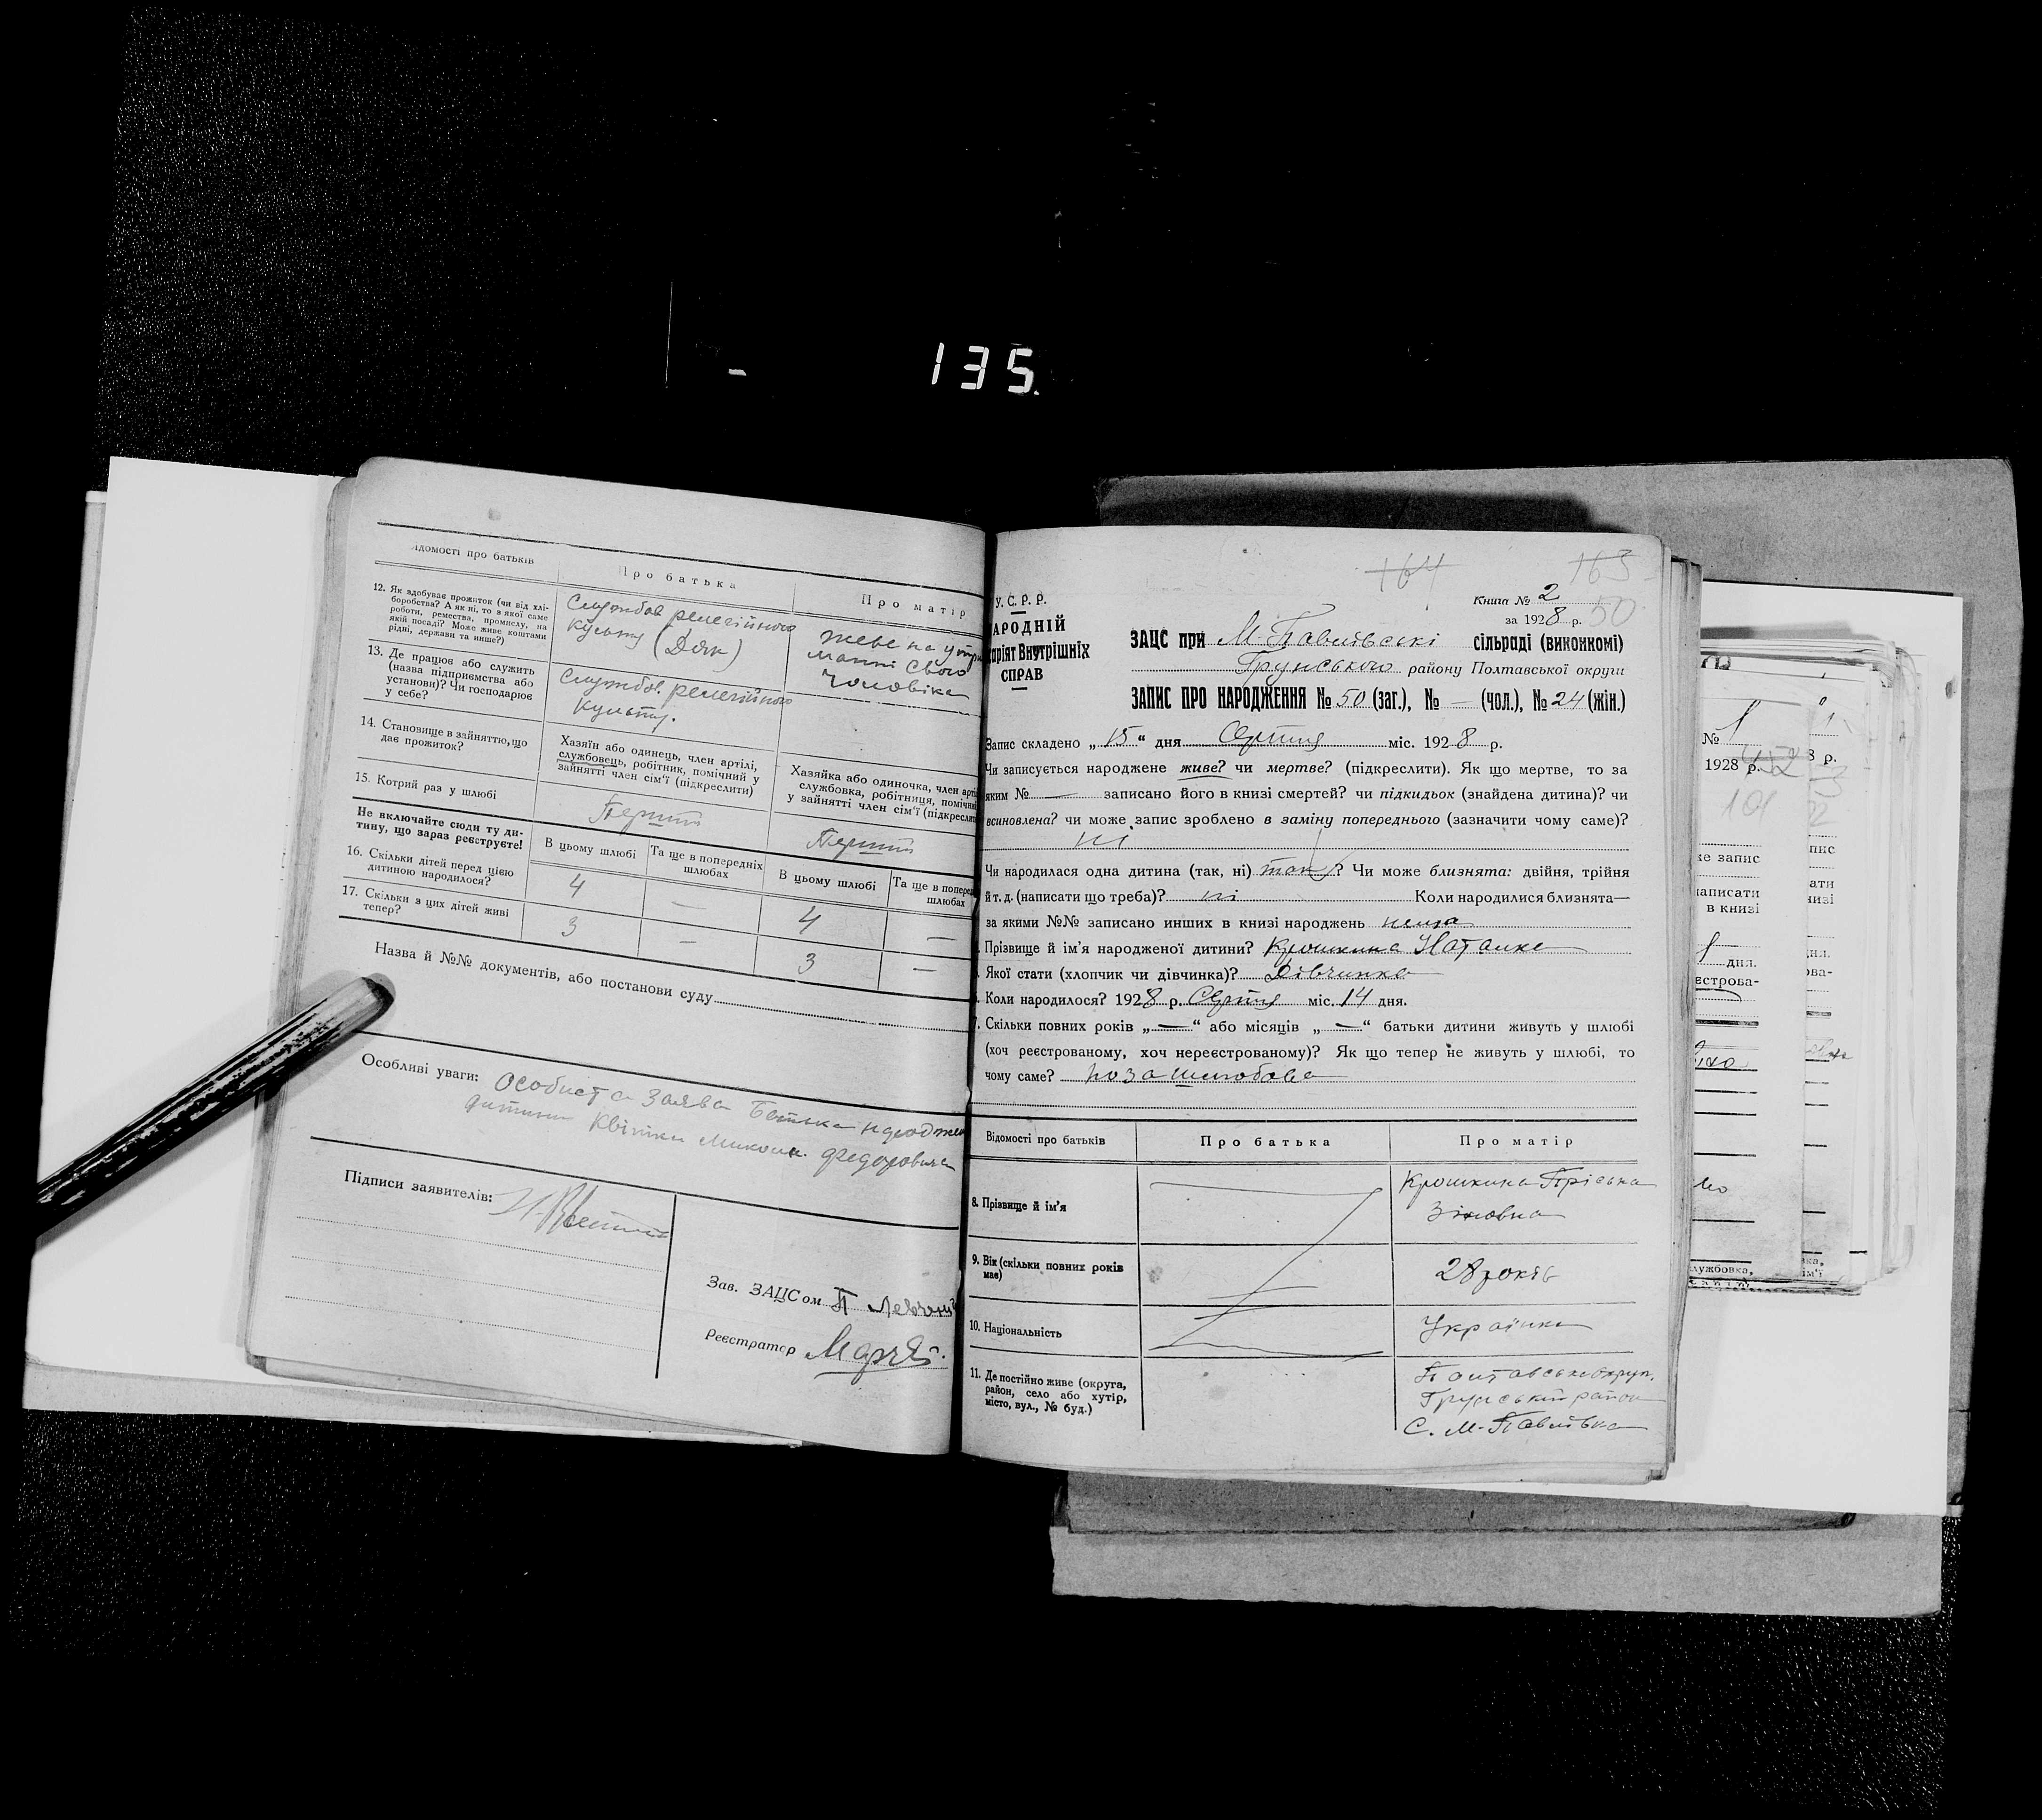 135.
Відомості про батьків
Про батька
Про матір
12. Як здобуває прожиток (чи від хлі-
боробства? А як ні, то з якої саме
роботи, ремества, промислу, на
якій посаді? Може живе коштами
рідні, держави та инше?)
Службов релегійного
культу (Дяк)
живе на утри
манні свого
чоловіка
13. Де працює або служить
(назва підприємства або
установи)? Чи господарює
у себе?
Службов. релегійного
культу.
14. Становище в зайняттю, що
дає прожиток?
Хазяїн або одинець, член артілі,
службовець, робітник, помічний у
зайнятті член сім'ї (підкреслити)
Хазяйка або одиночка, член арті
службовка, робітниця, помічни
у зайнятті член сім'ї (підкреслит
15. Котрий раз у шлюбі
Перший
Перший
Не включайте сюди ту ди-
тину, що зараз реєструєте!
В цьому шлюбі
Та ще в попередніх
шлюбах
В цьому шлюбі
Та ще в поперед
шлюбах
16. Скільки дітей перед цією
дитиною народилося?
4 — 4 —
17. Скільки з цих дітей живі
тепер?
3 — 3 —
Назва й №№ документів, або постанови суду
Особливі уваги: Особиста заява батька
дитини Квітки Микол. Федоровича
Підписи заявителів:
Зав. ЗАЦСом П
Реєстратор
164
163
У. С. Р. Р.
НАРОДНІЙ
Внутрішніх
СПРАВ
Книга № 2
50
за 1928 р.
ЗАЦС при М-Павлівські сільраді (виконкомі)
Грунського району Полтавської округи
ЗАПИС ПРО НАРОДЖЕННЯ № 50 (заг.), № — (чол.), № 24 (жін.)
Запис складено „15“ дня Серпня міс. 1928 р.
Чи записується народжене живе? чи мертве? (підкреслити). Як що мертве, то за
яким № — записано його в книзі смертей? чи підкидьох (знайдена дитина)? чи
всиновлена? чи може запис зроблено в заміну попереднього (зазначити чому саме)?
ні
Чи народилася одна дитина (так, ні) так? Чи може близнята: двійня, трійня
й т. д. (написати що треба)? ні Коли народилися близнята—
за якими №№ записано инших в книзі народжень нема
Прізвище й ім'я народженої дитини? Крошкина Наталка
Якої стати (хлопчик чи дівчинка)? Дівчинка
Коли народилося? 1928 р. Серпня міс. 14 дня.
Скільки повних років „—“ або місяців „—“ батьки дитини живуть у шлюбі
(хоч реєстрованому, хоч нереєстрованому)? Як що тепер не живуть у шлюбі, то
чому саме? позашлюбова
Відомості про батьків
Про батька
Про матір
8. Прізвище й ім'я
Крошкина Пріська
Зіновна
9. Вік (скільки повних років
має)
28 років
10. Національність
Українка
11. Де постійно живе (округа,
район, село або хутір,
місто, вул., № буд.)
Полтавська округ.
Грунський район
С. М-Павлівка
№ 1
1928 р.
8 р.
101
же запис
написати
в книзі
дня.
естрова-
службовка,